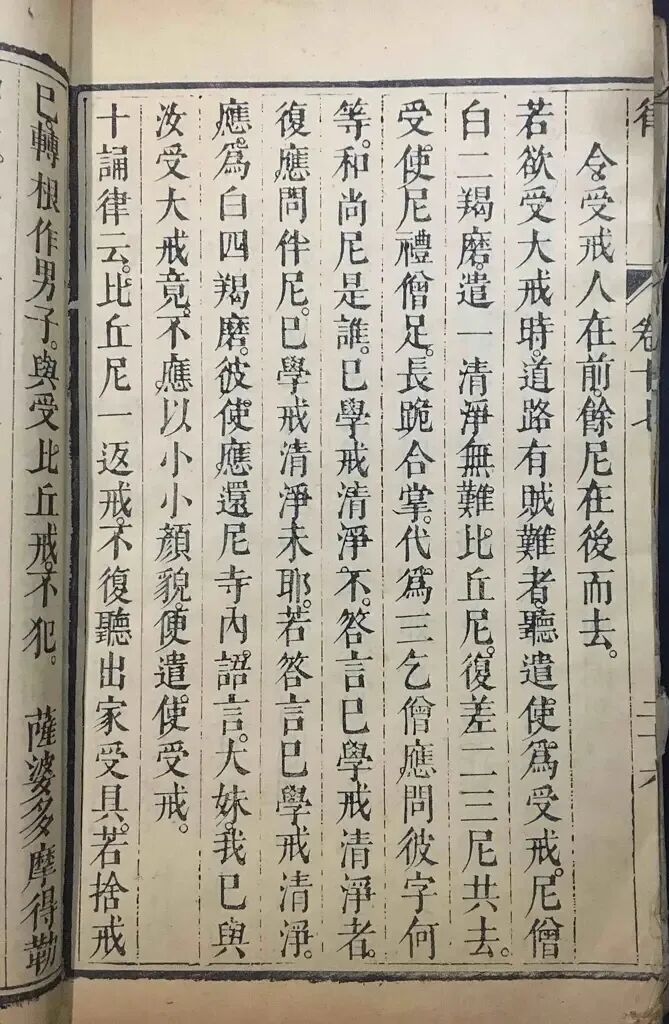 律
卷十七
二十六
令受戒人在前。餘尼在後而去。
若欲受大戒時。道路有賊難者。聽遣使爲受戒。尼僧
白二羯磨。遣一清淨無難比丘尼。復差二三尼共去。
受使尼禮僧足。長跪合掌。代爲三乞僧應問彼字何
等。和尚尼是誰。已學戒清淨。不。答言已學戒清淨者。
復應問伴尼。已學戒清淨未耶。若答言已學戒清淨。
應。爲白四羯磨。彼使應還尼寺內。語言。大妹。我已與
汝受大戒竟。不應以小小顏貌。便遣使受戒。
十誦律云。比丘尼一返戒。不復聽出家受具。若捨戒
已轉根作男子。與受比丘戒。不犯。 薩婆多摩得勒